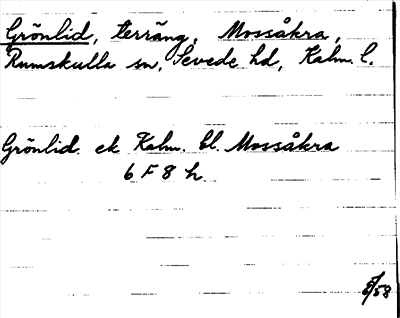 Grönlid, terräng, Mossåkra,
Rumskulla sn, Sevede hd, Kalm. l.
Grönlid. ek Kalm. bl. Mossåkra
6 F 8 h
/58